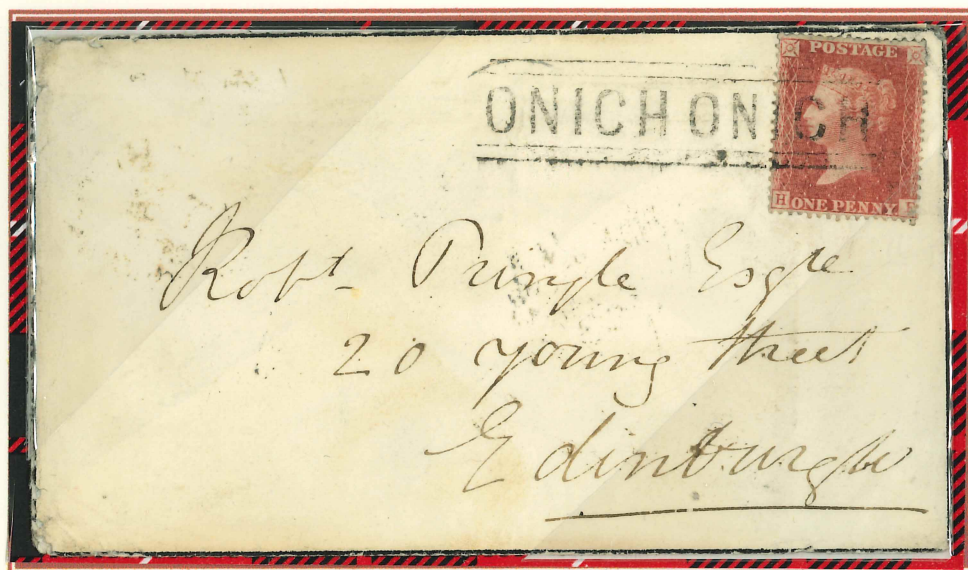 POSTAGE
ONICH ONICH
H ONE PENNY
Robt Pringle Esqre
20 Young Street
Edinburgh